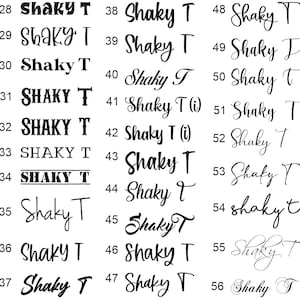 28 Shaky T
29 Shaky T
30 Shaky T
31 Shaky T
32 Shaky T
33 Shaky T
34 SHAKY T
35 Shaky T
36 Shaky T
37 Shaky T
38 Shaky T
39 Shaky T
40 Shaky T
41 Shaky T (i)
42 Shaky T (i)
43 Shaky T
44 Shaky T
45 Shaky T
46 Shaky T
47 Shaky T
48 Shaky T
49 Shaky T
50 Shaky T
51 Shaky T
52 Shaky T
53 Shaky T
54 shaky t
55 Shaky T
56 Shaky T